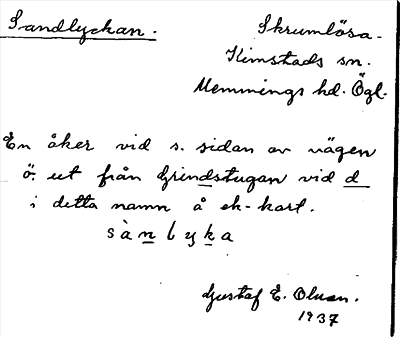 Sandlyckan. Skrumlösa.
Kimstads sn.
Memmings hd. Ögl.
En åker vid s. sidan av vägen
ö. ut från Grindstugan vid d
i detta namn å ek-kart.
sànlyka
Gustaf E. Olsson.
1937